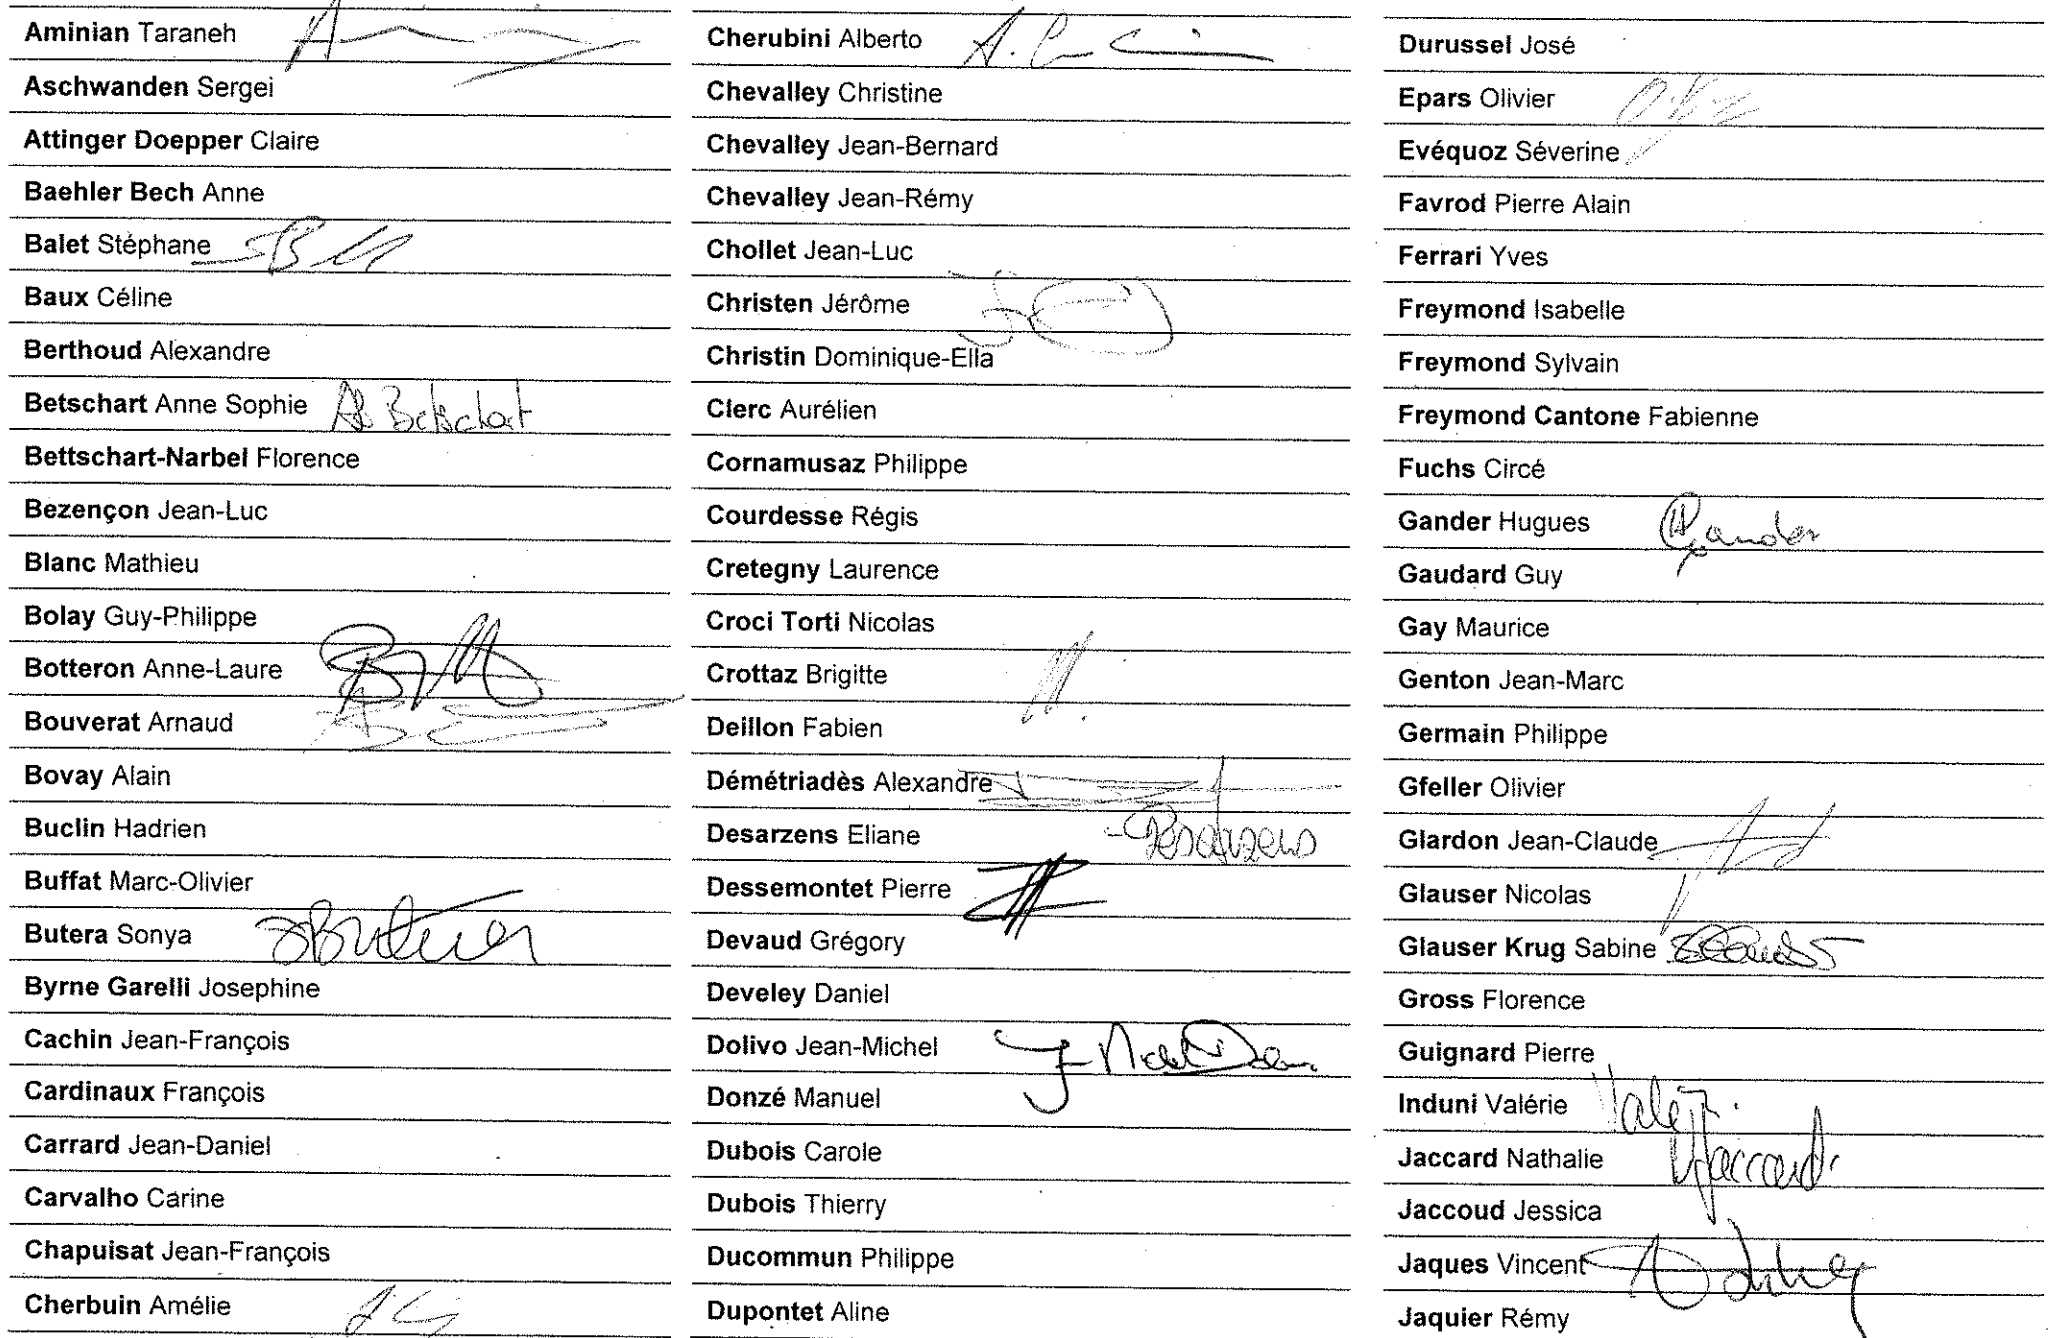 Aminian Taraneh
Aschwanden Sergei
Attinger Doepper Claire
Baehler Bech Anne
Balet Stéphane
Baux Céline
Berthoud Alexandre
Betschart Anne Sophie AS Betschart
Bettschart-Narbel Florence
Bezençon Jean-Luc
Blanc Mathieu
Bolay Guy-Philippe
Botteron Anne-Laure
Bouverat Arnaud
Bovay Alain
Buclin Hadrien
Buffat Marc-Olivier
Butera Sonya SButera
Byrne Garelli Josephine
Cachin Jean-François
Cardinaux François
Carrard Jean-Daniel
Carvalho Carine
Chapuisat Jean-François
Cherbuin Amélie
Cherubini Alberto
Chevalley Christine
Chevalley Jean-Bernard
Chevalley Jean-Rémy
Chollet Jean-Luc
Christen Jérôme
Christin Dominique-Ella
Clerc Aurélien
Cornamusaz Philippe
Courdesse Régis
Cretegny Laurence
Croci Torti Nicolas
Crottaz Brigitte
Deillon Fabien
Démétriadès Alexandre
Desarzens Eliane Desarzens
Dessemontet Pierre
Devaud Grégory
Develey Daniel
Dolivo Jean-Michel
Donzé Manuel
Dubois Carole
Dubois Thierry
Ducommun Philippe
Dupontet Aline
Durussel José
Epars Olivier
Evéquoz Séverine
Favrod Pierre Alain
Ferrari Yves
Freymond Isabelle
Freymond Sylvain
Freymond Cantone Fabienne
Fuchs Circé
Gander Hugues HGander
Gaudard Guy
Gay Maurice
Genton Jean-Marc
Germain Philippe
Gfeller Olivier
Glardon Jean-Claude
Glauser Nicolas
Glauser Krug Sabine
Gross Florence
Guignard Pierre
Induni Valérie
Jaccard Nathalie NJaccard
Jaccoud Jessica
Jaques Vincent
Jaquier Rémy